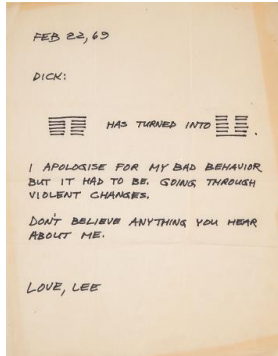 FEB 22, 69
DICK:
HAS TURNED INTO .
I APOLOGISE FOR MY BAD BEHAVIOR
BUT IT HAD TO BE. GOING THROUGH
VIOLENT CHANGES.
DON'T BELIEVE ANYTHING YOU HEAR
ABOUT ME.
LOVE, LEE